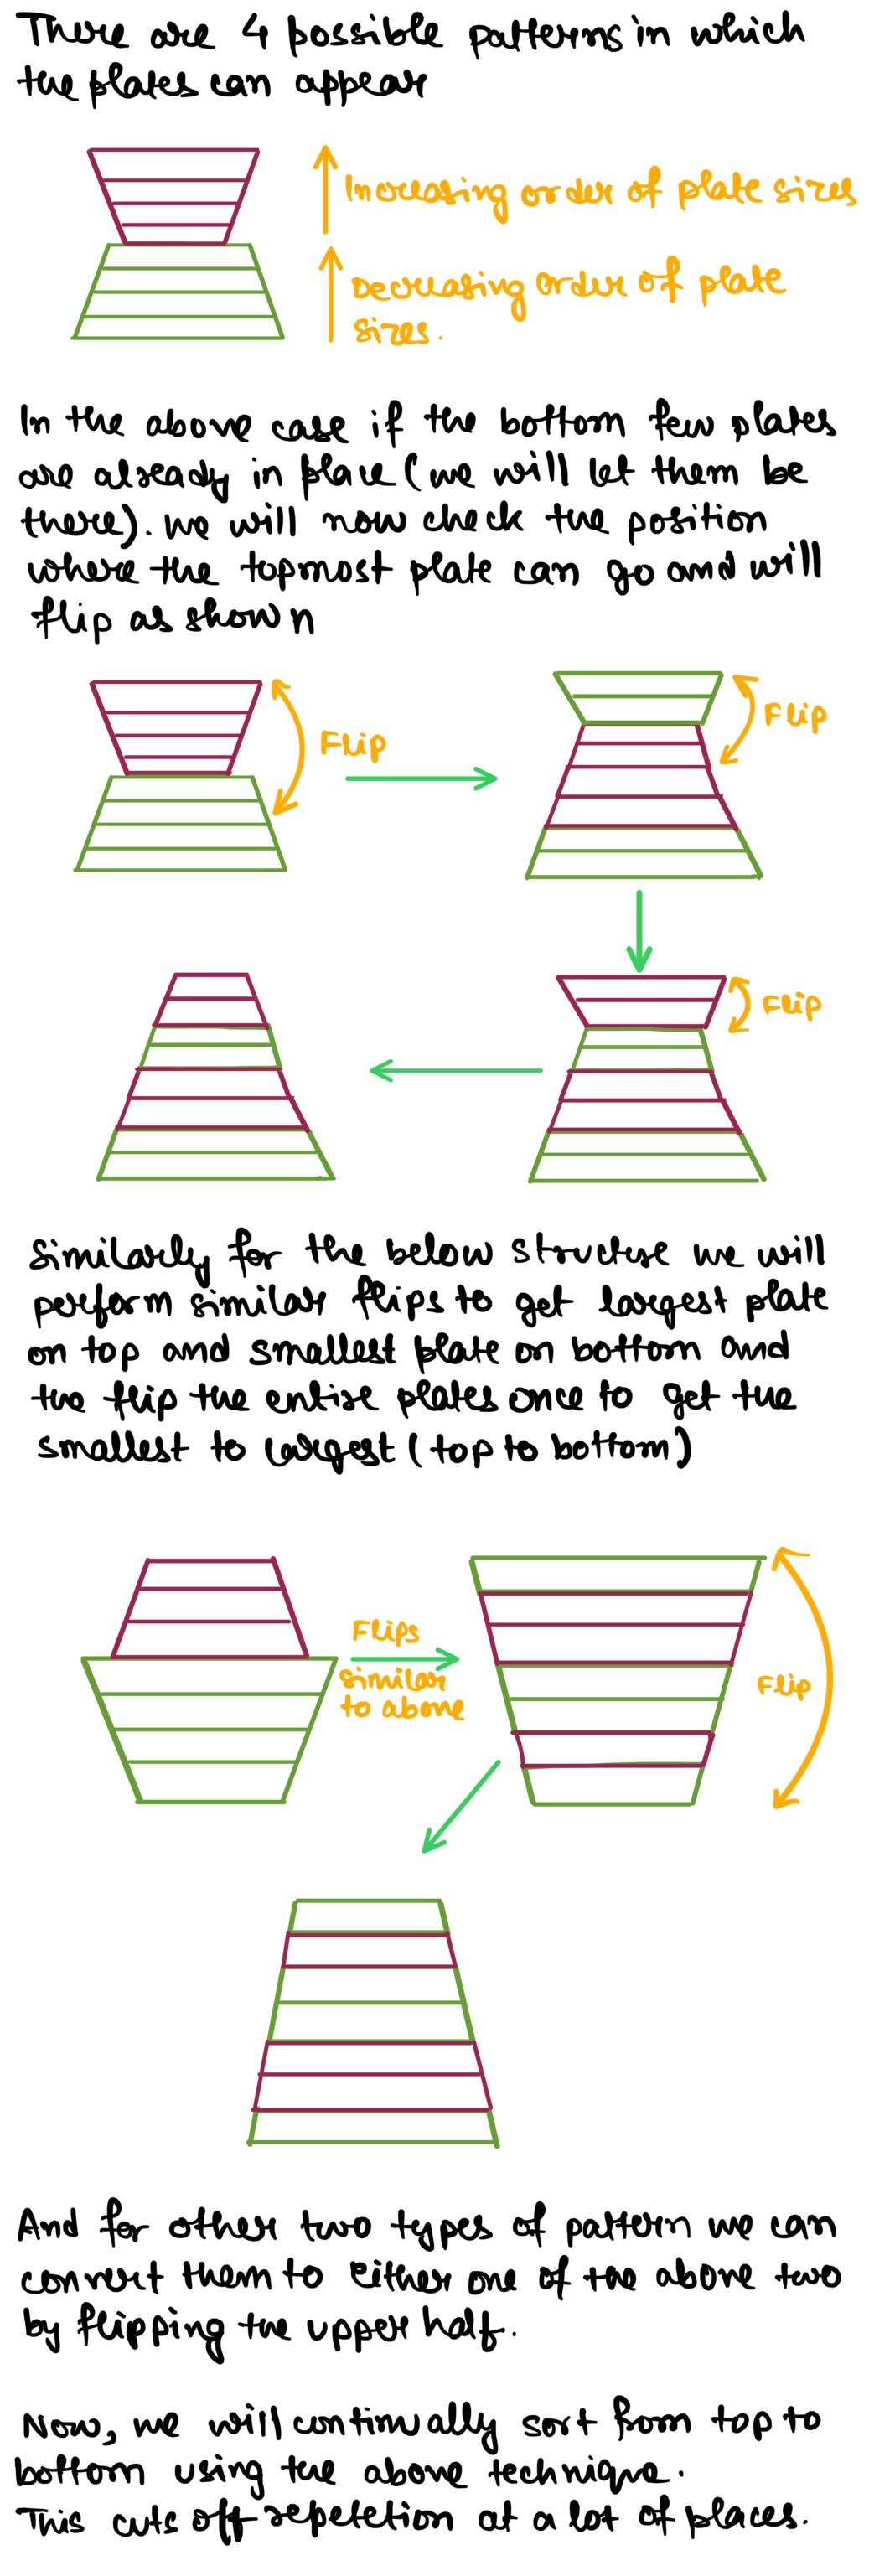 There are 4 possible patterns in which
the plates can appear
Increasing order of plate sizes
Decreasing order of plate
sizes.
In the above case if the bottom few plates
are already in place (we will let them be
there). we will now check the position
where the topmost plate can go and will
flip as shown
Flip
Flip
Flip
Similarly for the below structure we will
perform similar flips to get largest plate
on top and smallest plate on bottom and
the flip the entire plates once to get the
smallest to largest (top to bottom)
Flips
similar
to above
Flip
And for other two types of pattern we can
convert them to either one of the above two
by flipping the upper half.
Now, we will continually sort from top to
bottom using the above technique.
This cuts off repetetion at a lot of places.